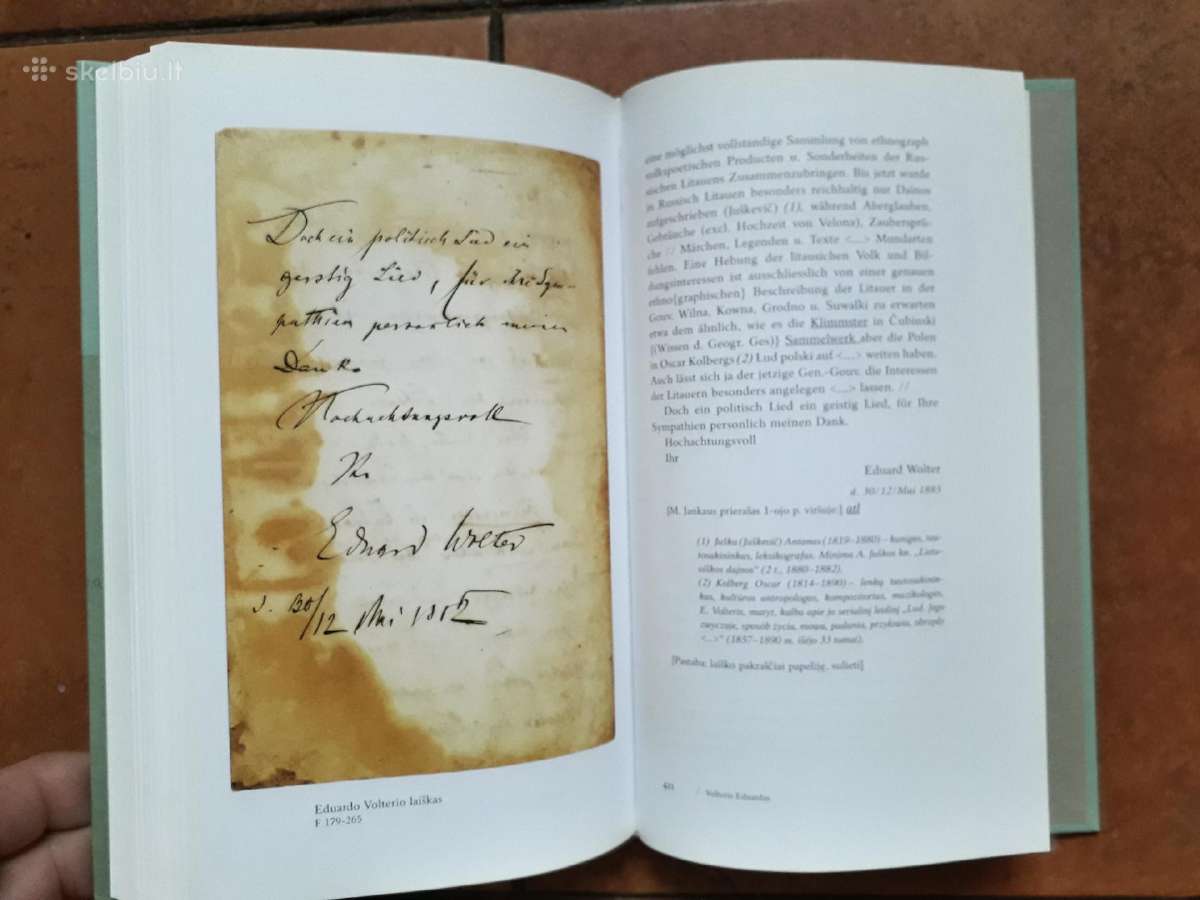 skelbiu.lt
Doch ein politisch Lied ein
garstig Lied, für Ihre Sym-
pathien personlich meinen
Dank.
Hochachtungsvoll
Ihr
Eduard Wolter
d. 30/12 Mai 188
Eduardo Volterio laiškas
F 179-265
eine möglichst vollständige Sammlung von ethnograph
volkspoetischen Producten u. Sonderheiten der Rus-
sischen Litauens Zusammenzubringen. Bis jetzt wurde
in Russisch Litauen besonders reichhaltig nur Dainos
aufgeschrieben (Juškevič) (1), während Aberglauben,
Gebräuche (excl. Hochzeit von Velona), Zaubersprü-
che // Märchen, Legenden u. Texte <...> Mundarten
fehlen. Eine Hebung der litauischen Volk und Bil-
dungsinteressen ist ausschliesslich von einer genauen
ethno{graphischen} Beschreibung der Litauer in der
Gouv. Wilna, Kowna, Grodno u. Suwalki zu erwarten
etwa dem ähnlich, wie es die Klimmster in Čubinski
{(Wissen d. Geogr. Ges)} Sammelwerk aber die Polen
in Oscar Kolbergs (2) Lud polski auf <...> weiten haben.
Auch lässt sich ja der jetzige Gen.-Gouv. die Interessen
der Litauern besonders angelegen <...> lassen. //
Doch ein politisch Lied ein geistig Lied, für Ihre
Sympathien personlich meinen Dank.
Hochachtungsvoll
Ihr
Eduard Wolter
d. 30/12/Mai 1885
[M. Jankaus prierašas 1-ojo p. viršuje:] atl
(1) Juška (Juškevič) Antanas (1819–1880) – kunigas, tau-
tosakininkas, leksikografas. Minima A. Juškos kn. „Lietu-
viškos dajnos" (2 t., 1880–1882).
(2) Kolberg Oscar (1814–1890) – lenkų tautosakinin-
kas, kultūros antropologas, kompozitorius, muzikologas.
E. Volteris, matyt, kalba apie jo serialinį leidinį „Lud. Jego
zwyczaje, sposób życia, mowa, podania, przysłowia, obrzędy
<...>" (1857–1890 m. išėjo 33 tomai).
[Pastaba: laiško pakraščiai papešiję, sulieti]
/ Volteris Eduardas